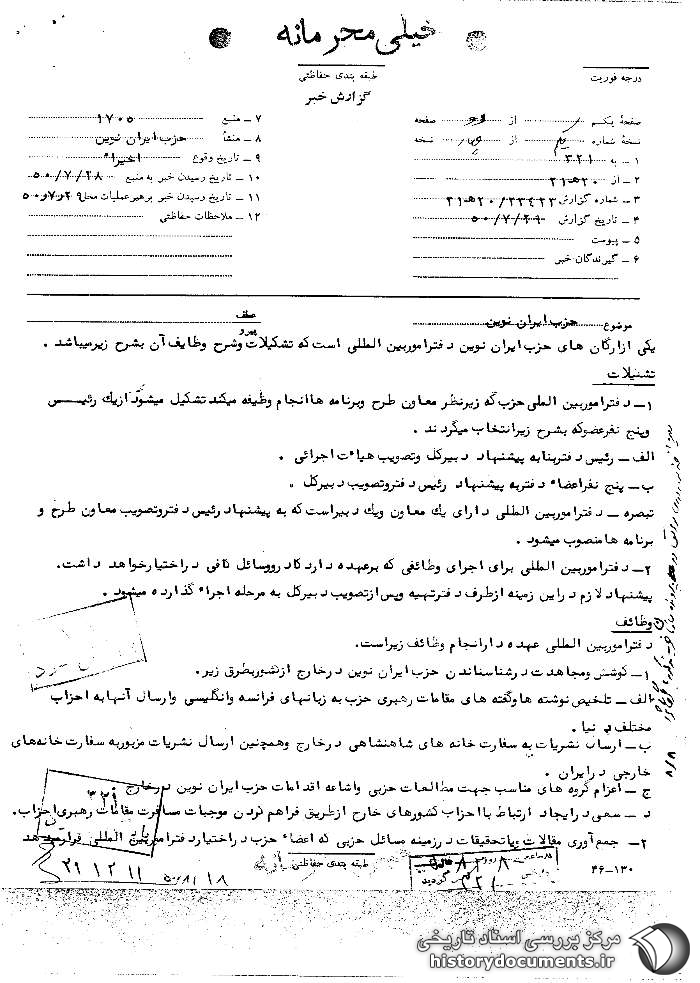 خیلی محرمانه
طبقه بندی حفاظتی
درجه فوریت
گزارش خبر
صفحهٔ یکم از صفحه
نسخهٔ شماره یکم از چهار نسخه
۱ ــ به ۳۲۱
۲ ــ از ۲۰ه‍۲۱
۳ ــ شماره گزارش ۲۳۴۲۳/۲۰ه‍۲۱
۴ ــ تاریخ گزارش ۵۰/۷/۲۹
۵ ــ پیوست
۶ ــ گیرندگان خبر
۷ ــ منبع ۱۷۰۵
۸ ــ منشأ حزب ایران نوین
۹ ــ تاریخ وقوع اخیراً
۱۰ ــ تاریخ رسیدن خبر به منبع ۵۰/۷/۲۸
۱۱ ــ تاریخ رسیدن خبر برهبر عملیات محل ۵۰٫۷٫۲۹
۱۲ ــ ملاحظات حفاظتی
موضوع حزب ایران نوین
عطف
پیرو
یکی از ارگان های حزب ایران نوین دفتر امور بین المللی است که تشکیلات و شرح وظایف آن بشرح زیر میباشد .
تشکیلات
۱ــ دفتر امور بین المللی حزب که زیر نظر معاون طرح و برنامه ها انجام وظیفه میکند تشکیل میشود از یك رئیـــس
و پنج نفر عضو که بشرح زیر انتخاب میگردند .
الف ــ رئیس دفتر بنا به پیشنهاد دبیر کل و تصویب هیات اجرائی .
ب ــ پنج نفر اعضاء دفتر به پیشنهاد رئیس دفتر و تصویب دبیر کل .
تبصره ــ دفتر امور بین المللی دارای یك معاون و یك دبیر است که به پیشنهاد رئیس دفتر و تصویب معاون طرح و
برنامه ها منصوب میشود .
۲ــ دفتر امور بین المللی برای اجرای وظائفی که بر عهده دارد کادر و وسائل کافی در اختیار خواهد داشت.
پیشنهاد لازم در این زمینه از طرف دفتر تهیه و پس از تصویب دبیر کل به مرحله اجراء گذارده میشود .
وظائف
دفتر امور بین المللی عهده دار انجام وظائف زیر است.
۱ــ کوشش و مجاهدت در شناساندن حزب ایران نوین در خارج از کشور بطرق زیر.
الف ــ تلخیص نوشته ها و گفته های مقامات رهبری حزب به زبانهای فرانسه و انگلیسی و ارسال آنها به احزاب
مختلف دنیا .
ب ــ ارسال نشریات به سفارت خانه های شاهنشاهی در خارج و همچنین ارسال نشریات مزبور به سفارت خانه های
خارجی در ایران .
ج ــ اعزام گروه های مناسب جهت مطالعات حزبی و اشاعه اقدامات حزب ایران نوین در خارج .
د ــ سعی در ایجاد ارتباط با احزاب کشورهای خارج از طریق فراهم کردن موجبات مسافرت مقامات رهبری احزاب.
۲ــ جمع آوری مقالات و یا تحقیقات در زمینه مسائل حزبی که اعضاء حزب در اختیار دفتر امور بین المللی قرار میدهند
طبقه بندی حفاظتی
۳۶-۱۳۰
۳۲۱
۲۱ ۱۲ ۱۱
۵۰/۸/۱۸
۸/۸
گردید
مرکز بررسی اسناد تاریخی
historydocuments.ir